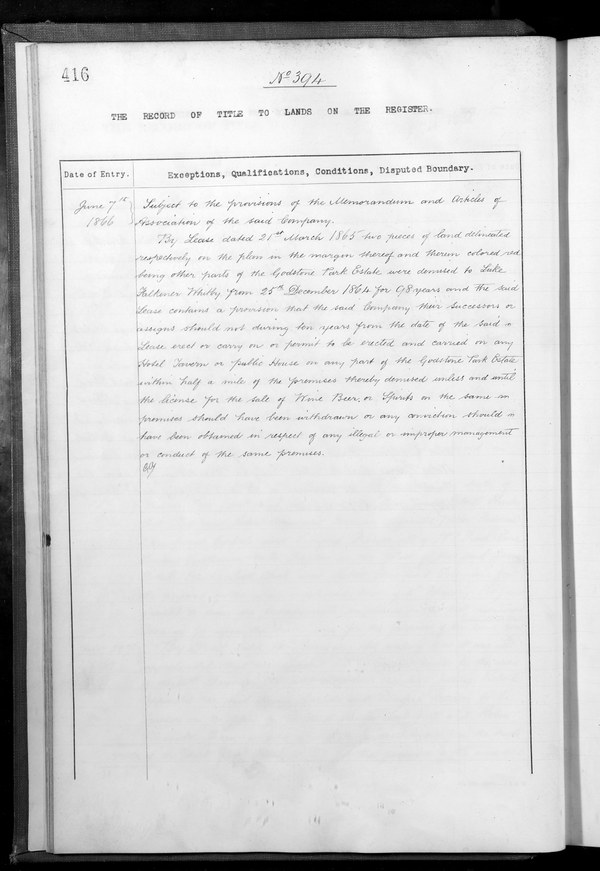 416
No 394
THE RECORD OF TITLE TO LANDS ON THE REGISTER.
Date of Entry.
Exceptions, Qualifications, Conditions, Disputed Boundary.
June 7th
1866
Subject to the provisions of the Memorandum and Articles of
Association of the said Company.
By Lease dated 21st March 1865 two pieces of land delineated
respectively on the plan in the margin thereof and therein colored red
being other parts of the Godstone Park Estate were demised to Luke
Falkener Whitby from 25th December 1864 for 98 years and the said
Lease contains a provision that the said Company their Successors or
assigns should not during ten years from the date of the said
Lease erect or carry on or permit to be erected and carried on any
Hotel Tavern or public House on any part of the Godstone Park Estate
within half a mile of the premises thereby demised unless and until
the license for the sale of Wine Beer, or Spirits on the same
premises should have been withdrawn or any conviction should
have been obtained in respect of any illegal or improper management
or conduct of the same premises.